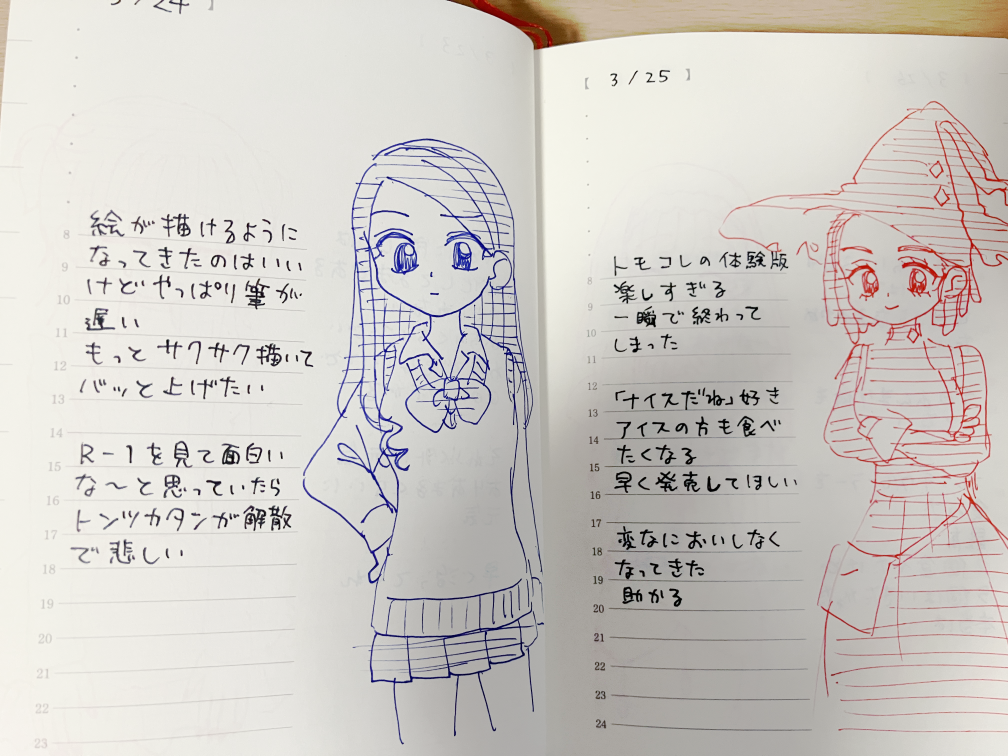 3/24 】
絵が描けるように
なってきたのはいい
けどやっぱり筆が
遅い
もっとサクサク描いて
バッと上げたい
R-1を見て面白い
な〜と思っていたら
トンツカタンが解散
で悲しい
8
9
10
11
12
13
14
15
16
17
18
19
20
21
22
23
【 3/25 】
トモコレの体験版
楽しすぎる
一瞬で終わって
しまった
「ナイスだね」好き
アイスの方も食べ
たくなる
早く発売してほしい
変なにおいしなく
なってきた
助かる
8
9
10
11
12
13
14
15
16
17
18
19
20
21
22
23
24